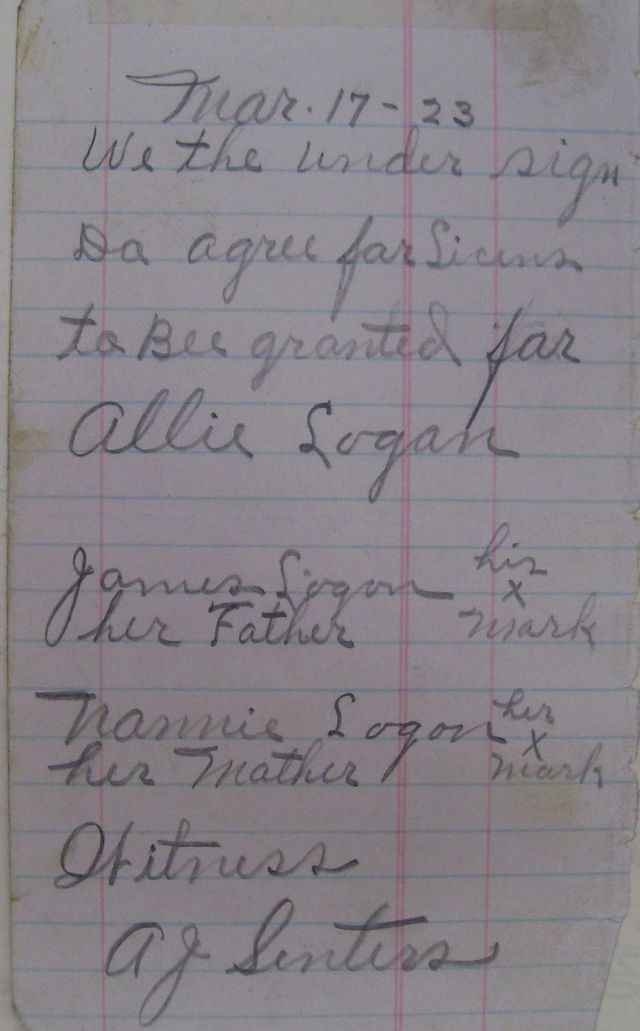 Mar. 17 - 23
We the under sign
Do agree for Licens
to Bee granted for
Allie Logan
James Logon his
x
her Father mark
Nannie Logon her
x
her Mother mark
Witness
AJ Senters